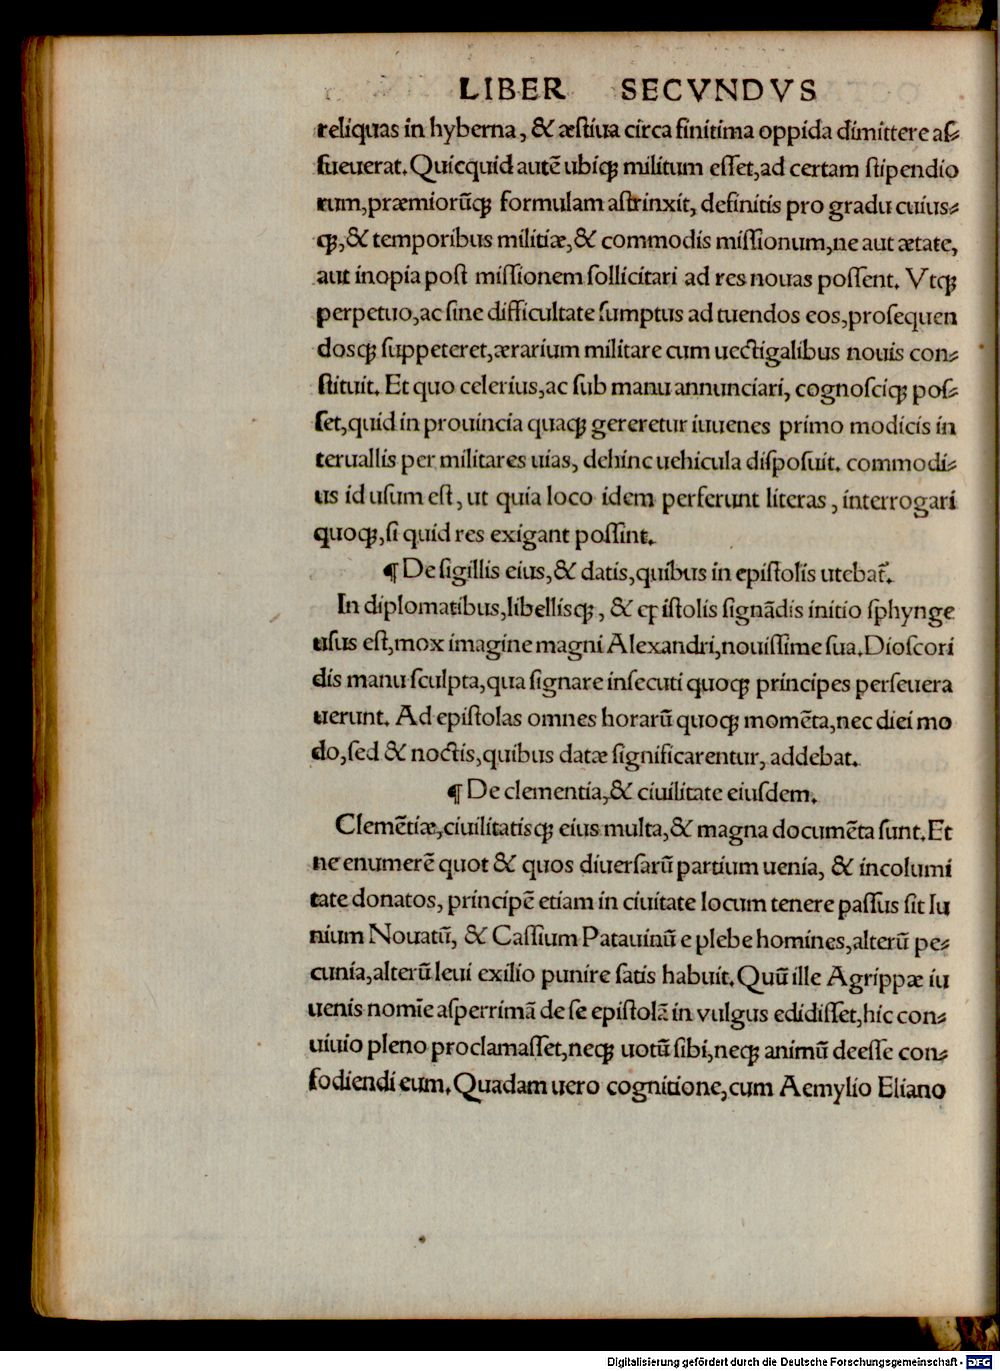 LIBER SECVNDVS
reliquas in hyberna, & æſtiua circa finitima oppida dimittere aſ⸗
ſueuerat. Quicquid autē ubiqꝫ militum eſſet, ad certam ſtipendio
rum, præmiorūqꝫ formulam aſtrinxit, definitis pro gradu cuius⸗
qꝫ, & temporibus militiæ, & commodis miſſionum, ne aut ætate,
aut inopia poſt miſſionem ſollicitari ad res nouas poſſent. Vtqꝫ
perpetuo, ac ſine difficultate ſumptus ad tuendos eos, proſequen
dosqꝫ ſuppeteret, ærarium militare cum uectigalibus nouis con⸗
ſtituit. Et quo celerius, ac ſub manu annunciari, cognoſciqꝫ poſ⸗
ſet, quid in prouincia quaqꝫ gereretur iuuenes primo modicis in
teruallis per militares uias, dehinc uehicula diſpoſuit. commodi⸗
us id uſum eſt, ut quia loco idem perferunt literas, interrogari
quoqꝫ, ſi quid res exigant poſſint.
¶ De ſigillis eius, & datis, quibus in epiſtolis utebat᷑.
In diplomatibus, libellisqꝫ, & epiſtolis ſignādis initio ſphynge
uſus eſt, mox imagine magni Alexandri, nouiſſime ſua. Dioſcori
dis manu ſculpta, qua ſignare inſecuti quoqꝫ principes perſeuera
uerunt. Ad epiſtolas omnes horarū quoqꝫ momēta, nec diei mo
do, ſed & noctis, quibus datæ ſignificarentur, addebat.
¶ De clementia, & ciuilitate eiuſdem.
Clemētiæ, ciuilitatisqꝫ eius multa, & magna documēta ſunt. Et
ne enumerē quot & quos diuerſarū partium uenia, & incolumi
tate donatos, principē etiam in ciuitate locum tenere paſſus ſit Iu
nium Nouatū, & Caſſium Patauinū e plebe homines, alterū pe⸗
cunia, alterū leui exilio punire ſatis habuit. Quū ille Agrippæ iu
uenis nomīe aſperrimā de ſe epiſtolā in vulgus edidiſſet, hic con⸗
uiuio pleno proclamaſſet, neqꝫ uotū ſibi, neqꝫ animū deeſſe con⸗
fodiendi eum. Quadam uero cognitione, cum Aemylio Eliano
Digitalisierung gefördert durch die Deutsche Forschungsgemeinschaft - DFG